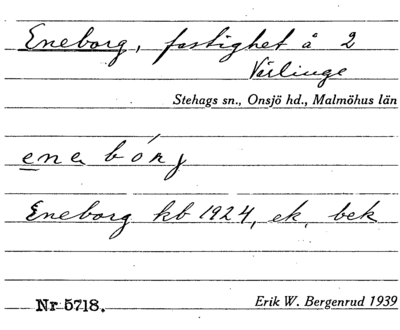 Eneborg, fastighet å 2
Värlinge
Stehags sn., Onsjö hd., Malmöhus län
ene bórj
Eneborg kb 1924, ek, bek
Nr 5718. Erik W. Bergenrud 1939